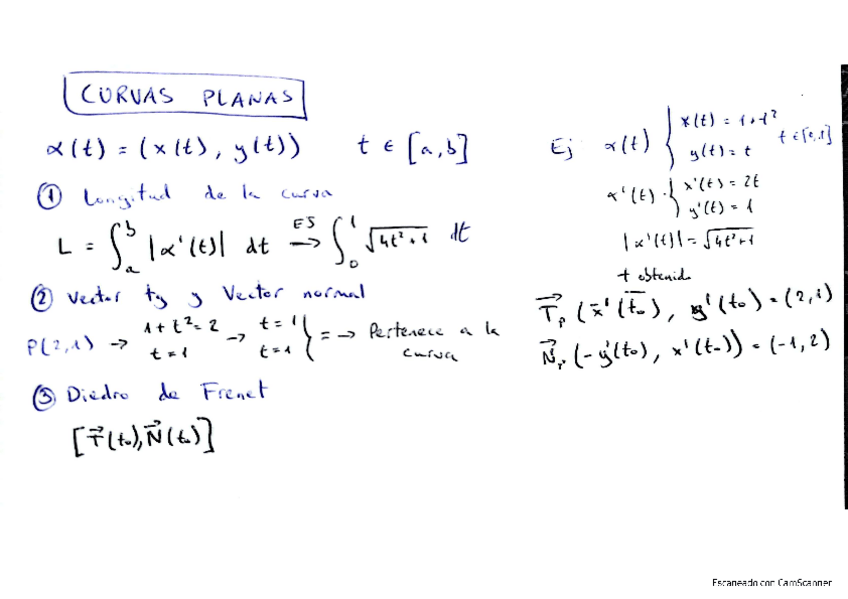 CURVAS PLANAS
α(t) = (x(t), y(t))   t ∈ [a,b]
① Longitud de la curva
L = ∫_a^b |α'(t)| dt →(EJ) ∫_0^1 √(4t²+1) dt
② Vector tg y Vector normal
P(2,1) → { 1+t²=2 ; t=1 → { t=1 ; t=1 } = → Pertenece a la curva
③ Diedro de Frenet
[T⃗(t₀), N⃗(t₀)]
Ej α(t) { x(t) = 1+t²
y(t) = t   t ∈ [0,1]
α'(t) { x'(t) = 2t
y'(t) = 1
|α'(t)| = √(4t²+1)
t obtenido
T⃗ₚ (x'(t₀), y'(t₀) = (2,1)
N⃗ₚ (-y'(t₀), x'(t₀)) = (-1,2)
Escaneado con CamScanner